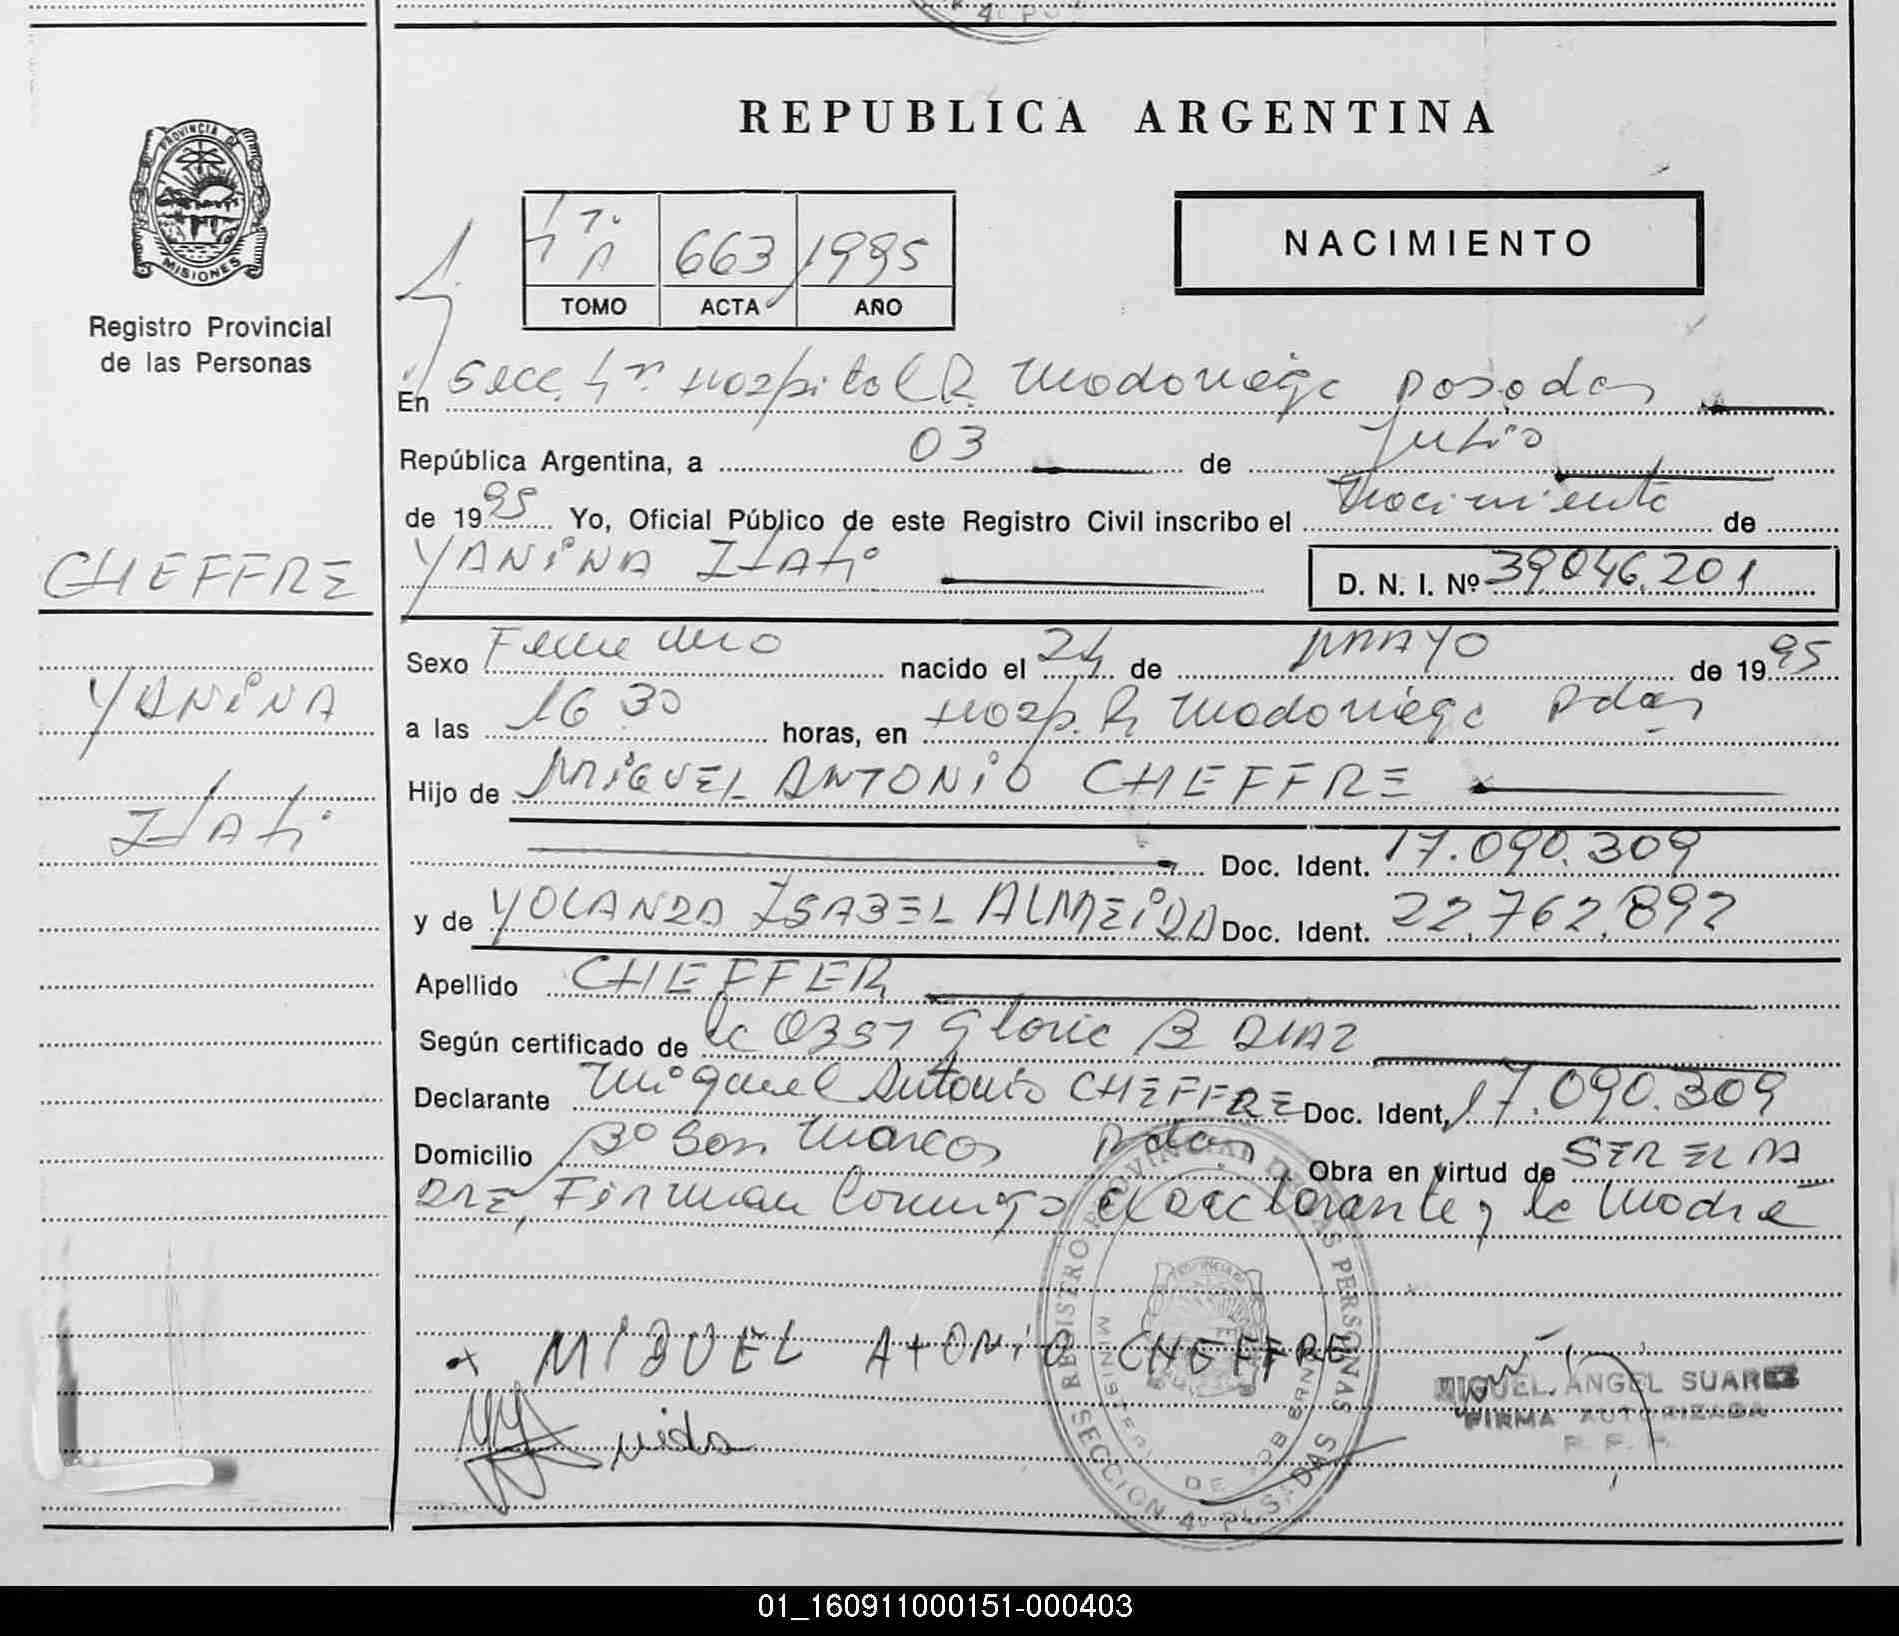 REPUBLICA ARGENTINA
PROVINCIA DE
MISIONES
Registro Provincial
de las Personas
NACIMIENTO
663 1995
TOMO ACTA AÑO
En Secc. 4ª Hospital R. Madariaga Posadas
República Argentina, a 03 de Julio
de 1995 Yo, Oficial Público de este Registro Civil inscribo el Nacimiento de
YANINA Itatí D. N. I. Nº 39.046.201
CHEFFRE
YANINA
Itatí
Sexo Femenino nacido el 24 de MAYO de 1995
a las 16 30 horas, en Hosp. R Madariaga Pdas
Hijo de MIGUEL ANTONIO CHEFFRE
Doc. Ident. 17.090.309
y de YOLANDA ISABEL ALMEIDA Doc. Ident. 22.762.892
Apellido CHEFFER
Según certificado de Gloria B DIAZ
Declarante Miguel Antonio CHEFFRE Doc. Ident. 17.090.309
Domicilio Bº San Marcos Pdas Obra en virtud de SER EL PA
DRE, Firman Conmigo el declarante y la Madre
MIGUEL ATONIO CHEFFRE
REGISTRO PROVINCIAL DE LAS PERSONAS
MINISTERIO DE GOBIERNO
SECCION 4º POSADAS
MIGUEL ANGEL SUAREZ
FIRMA AUTORIZADA
01_160911000151-000403